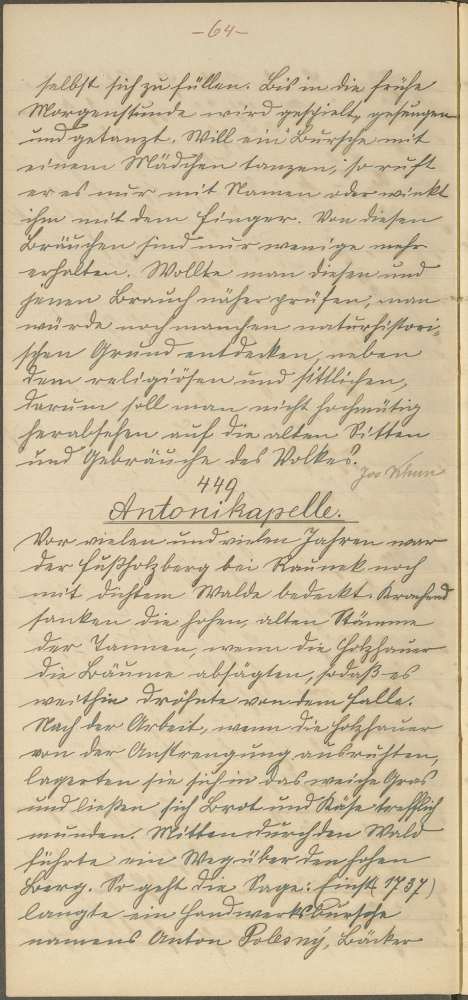 -64-
selbst sich zu füllen. Bis in die frühe
Morgenstunde wird gespielt, gesungen
und getanzt. Will ein Bursche mit
einem Mädchen tanzen, so ruft
er es nur mit Namen oder winkt
ihm mit dem Finger. Von diesen
Bräuchen sind nur wenige mehr
erhalten. Wollte man diesen und
jenen Brauch näher prüfen, man
würde noch manchen naturhistori-
schen Grund entdecken, neben
dem religiösen und sittlichen,
darum soll man nicht hochmütig
herabsehen auf die alten Sitten
und Gebräuche des Volkes.
449
Antonikapelle.
Vor vielen und vielen Jahren war
der Fußholzberg bei Raunek noch
mit dichtem Walde bedeckt. Krachend
sanken die hohen, alten Stämme
der Tannen, wenn die Holzhauer
die Bäume absägten, sodaß es
weithin dröhnte von dem Falle.
Nach der Arbeit, wenn die Holzhauer
von der Anstrengung ausruhten,
lagerten sie sich in das weiche Gras
und ließen sich Brot und Käse trefflich
munden. Mitten durch den Wald
führte ein Weg über den hohen
Berg. So geht die Sage: Einst (1737)
langte ein Handwerksbursche
namens Anton Polesný, Bäcker